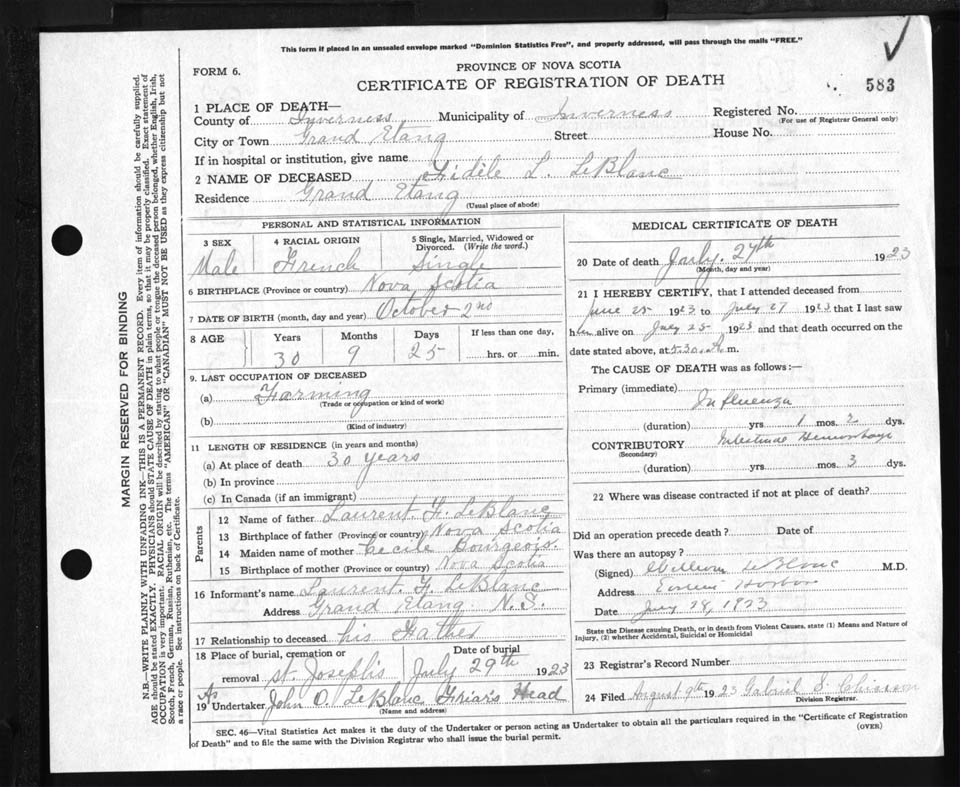 This form if placed in an unsealed envelope marked "Dominion Statistics Free", and properly addressed, will pass through the mails "FREE."
FORM 6.
PROVINCE OF NOVA SCOTIA
CERTIFICATE OF REGISTRATION OF DEATH
583
1 PLACE OF DEATH—
County of Inverness Municipality of Inverness Registered No.
(For use of Registrar General only)
City or Town Grand Etang Street House No.
If in hospital or institution, give name
2 NAME OF DECEASED Fidèle L. LeBlanc
Residence Grand Etang
(Usual place of abode)
PERSONAL AND STATISTICAL INFORMATION
3 SEX 4 RACIAL ORIGIN 5 Single, Married, Widowed or Divorced. (Write the word.)
Male French Single
6 BIRTHPLACE (Province or country) Nova Scotia
7 DATE OF BIRTH (month, day and year) October 2nd
8 AGE Years Months Days If less than one day,
30 9 25 hrs. or min.
9. LAST OCCUPATION OF DECEASED
(a) Farming
(Trade or occupation or kind of work)
(b)
(Kind of industry)
11 LENGTH OF RESIDENCE (in years and months)
(a) At place of death 30 years
(b) In province
(c) In Canada (if an immigrant)
Parents
12 Name of father Laurent. H. LeBlanc
13 Birthplace of father (Province or country) Nova Scotia
14 Maiden name of mother Cecile Bourgeois.
15 Birthplace of mother (Province or country) Nova Scotia
16 Informant's name Laurent. H. LeBlanc
Address Grand Etang N.S.
17 Relationship to deceased his Father
18 Place of burial, cremation or removal Date of burial
St. Joseph's July 29th 1923
As
19 Undertaker John O. LeBlanc Friar's Head
(Name and address)
MEDICAL CERTIFICATE OF DEATH
20 Date of death July. 27th 1923
(Month, day and year)
21 I HEREBY CERTIFY, that I attended deceased from
June 25 1923 to July 27 1923 that I last saw
him alive on July 25 1923 and that death occurred on the
date stated above, at 5.30. A. m.
The CAUSE OF DEATH was as follows:—
Primary (immediate) Influenza
(duration) yrs 1 mos. 2 dys.
CONTRIBUTORY Intestinal Hemorrhage
(Secondary)
(duration) yrs. mos. 3 dys.
22 Where was disease contracted if not at place of death?
Did an operation precede death? Date of
Was there an autopsy?
(Signed) William LeBlanc M.D.
Address Harbor
Date July 29, 1923
State the Disease causing Death, or in death from Violent Causes, state (1) Means and Nature of Injury, (2) whether Accidental, Suicidal or Homicidal
23 Registrar's Record Number
24 Filed August 9th 1923 Gabriel S. Chiasson
Division Registrar.
SEC. 46—Vital Statistics Act makes it the duty of the Undertaker or person acting as Undertaker to obtain all the particulars required in the "Certificate of Registration
of Death" and to file the same with the Division Registrar who shall issue the burial permit.
(OVER)
MARGIN RESERVED FOR BINDING
N.B.—WRITE PLAINLY WITH UNFADING INK—THIS IS A PERMANENT RECORD. Every item of information should be carefully supplied.
AGE should be stated EXACTLY. PHYSICIANS should STATE CAUSE OF DEATH in plain terms, so that it may be properly classified. Exact statement of
OCCUPATION is very important. RACIAL ORIGIN will be described by stating to what people or tongue the deceased person belonged, whether English, Irish,
Scotch, French, German, Russian, Ruthenian, etc. The terms "AMERICAN" OR "CANADIAN" MUST NOT BE USED as they express citizenship but not
a race or people. See instructions on back of Certificate.